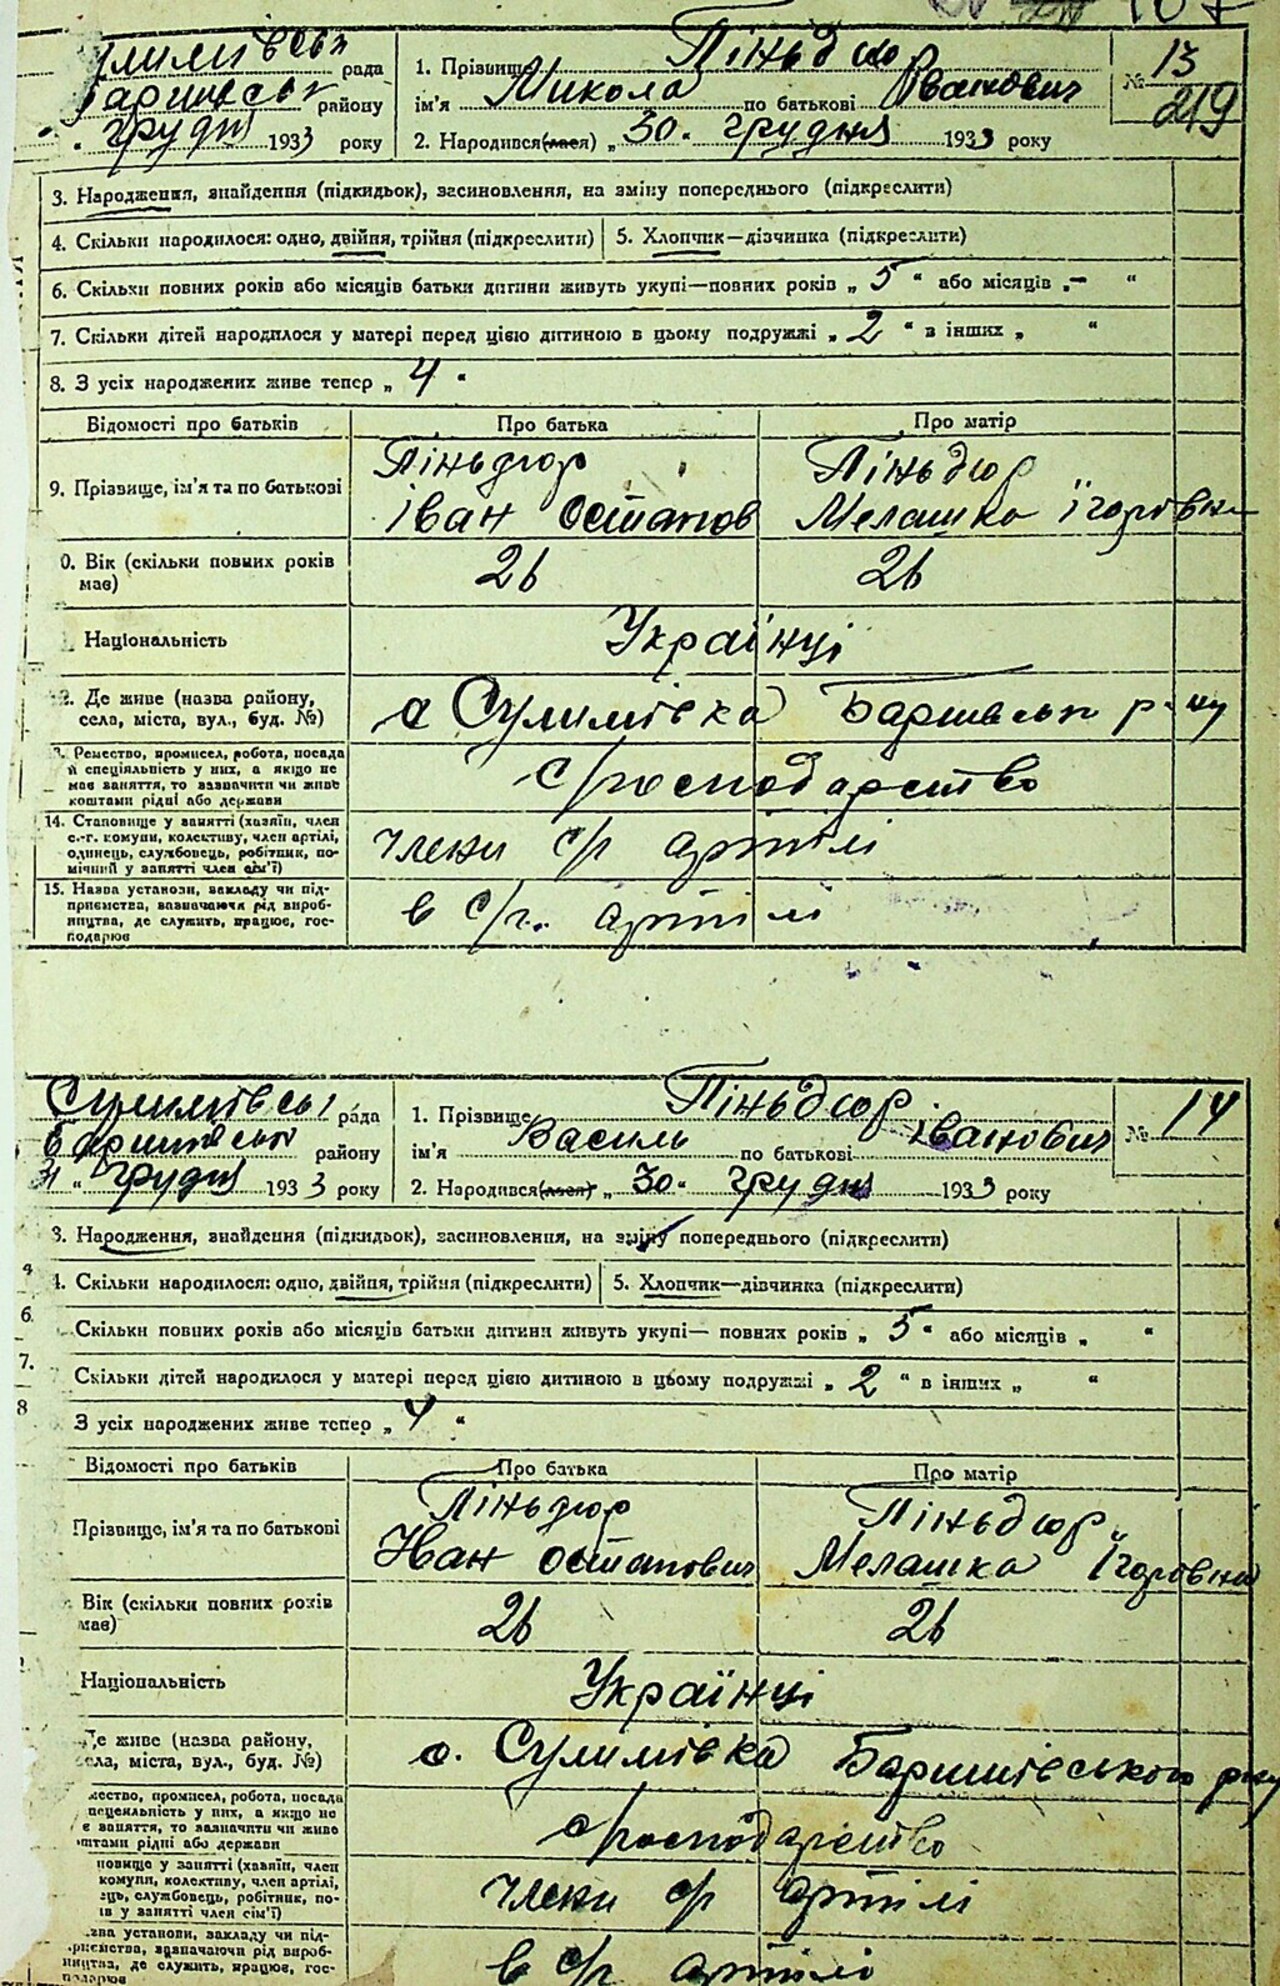 рада
1. Прізвище Піньдюр
№ 13
району
ім'я Микола по батькові Іванович
219
грудня 1933 року
2. Народився(лася) „ 30 “ грудня 1933 року
3. Народження, знайдення (підкидьок), засиновлення, на зміну попереднього (підкреслити)
4. Скільки народилося: одно, двійня, трійня (підкреслити)
5. Хлопчик—дівчинка (підкреслити)
6. Скільки повних років або місяців батьки дитини живуть укупі—повних років „ 5 “ або місяців „ – “
7. Скільки дітей народилося у матері перед цією дитиною в цьому подружжі „ 2 “ в інших „ “
8. З усіх народжених живе тепер „ 4 “
Відомості про батьків
Про батька
Про матір
9. Прізвище, ім'я та по батькові
Піньдюр
Іван Остапов
Піньдюр
Мелашка Їгорівна
0. Вік (скільки повних років
має)
26
26
Національність
Українці
2. Де живе (назва району,
села, міста, вул., буд. №)
с Сулимівка Баришівськ р-ну
3. Ремество, промисел, робота, посада
й спеціяльність у них, а якщо не
має заняття, то зазначити чи живе
коштами рідні або держави
с/господарство
14. Становище у занятті (хазяїн, член
с.-г. комуни, колективу, член артілі,
одинець, службовець, робітник, по-
мічний у занятті член сім'ї)
члени с/г артілі
15. Назва установи, закладу чи під-
приємства, вазначаючи рід вироб-
ництва, де служить, працює, гос-
подарює
в с/г. артілі
Сулимівська рада
1. Прізвище Піньдюр
№ 14
Баришівського району
ім'я Василь по батькові Іванович
31 “ грудня 1933 року
2. Народився(лася) „ 30 “ грудня 1933 року
3. Народження, знайдення (підкидьок), засиновлення, на зміну попереднього (підкреслити)
4. Скільки народилося: одно, двійня, трійня (підкреслити)
5. Хлопчик—дівчинка (підкреслити)
6. Скільки повних років або місяців батьки дитини живуть укупі— повних років „ 5 “ або місяців „ “
7. Скільки дітей народилося у матері перед цією дитиною в цьому подружжі „ 2 “ в інших „ “
8 З усіх народжених живе тепер „ 4 “
Відомості про батьків
Про батька
Про матір
Прізвище, ім'я та по батькові
Піньдюр
Иван Остапович
Піньдюр
Мелашка Їгорівна
Вік (скільки повних років
має)
26
26
Національність
Українці
Де живе (назва району,
села, міста, вул., буд. №)
с. Сулимівка Баришівського р-ну
мество, промисел, робота, посада
пецеяльність у них, а якщо не
є заняття, то зазначити чи живе
штами рідні або держави
с/господарство
новище у занятті (хазяїн, член
комуни, колективу, член артілі,
ець, службовець, робітник, по-
ів у занятті член сім'ї)
члени с/г артілі
зва установи, закладу чи під-
приємства, вазначаючи рід вироб-
ництва, де служить, працює, гос-
подарює
в с/г артілі